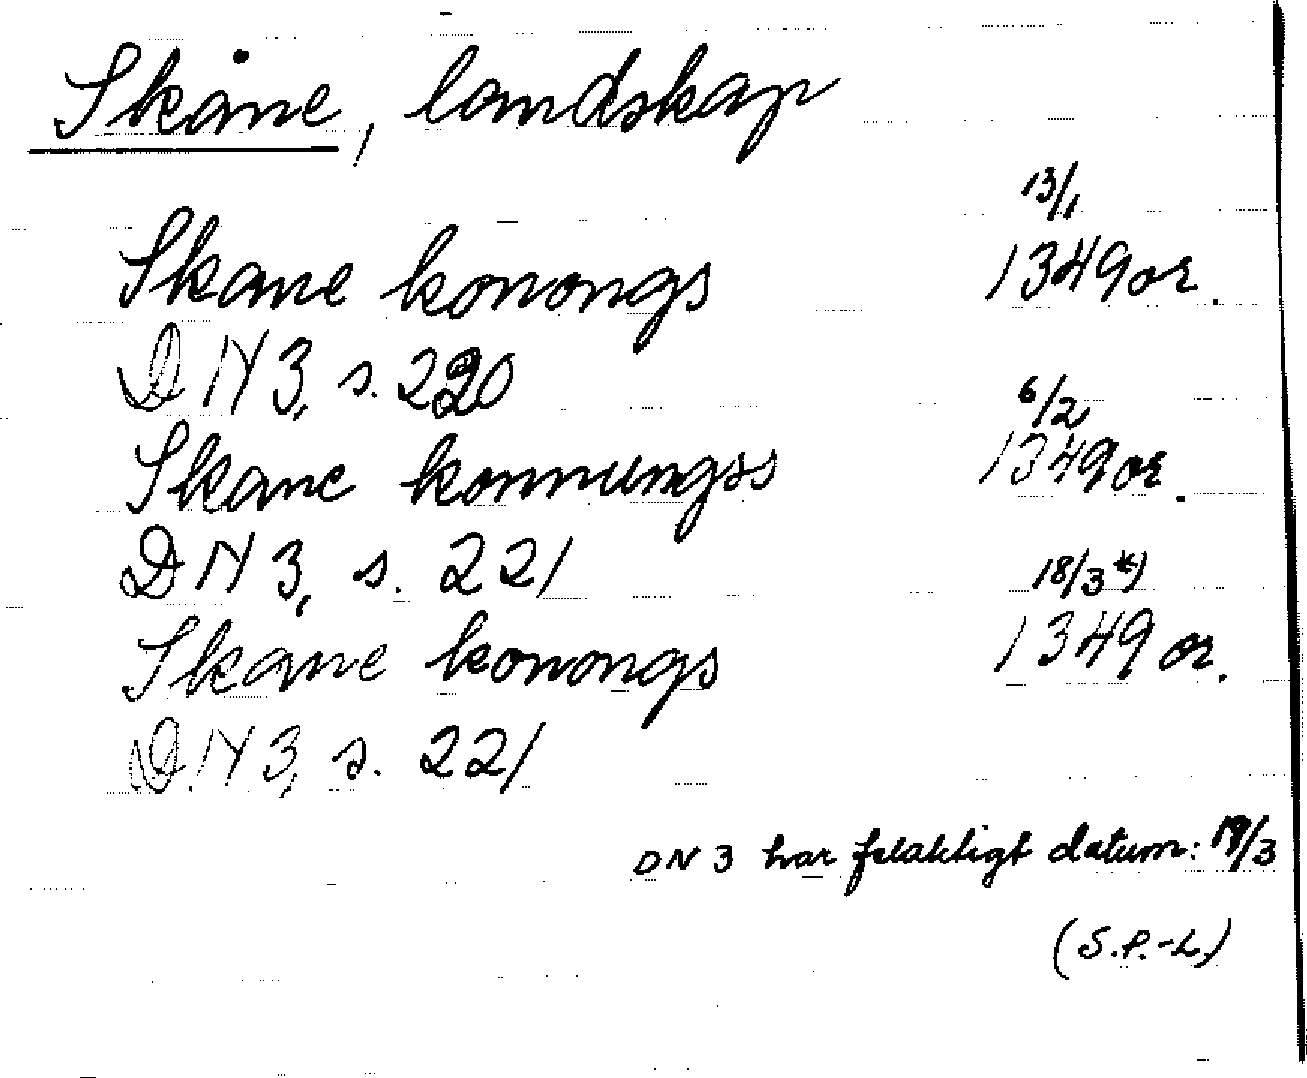 Skåne, landskap
13/1
Skane konongs 1349 or.
DN 3, s. 220
6/2
Skane konnungss 1349 or.
DN 3, s. 221
18/3 *)
Skane konongs 1349 or.
DN 3, s. 221
DN 3 har felaktigt datum: 19/3
(S.P.-L.)